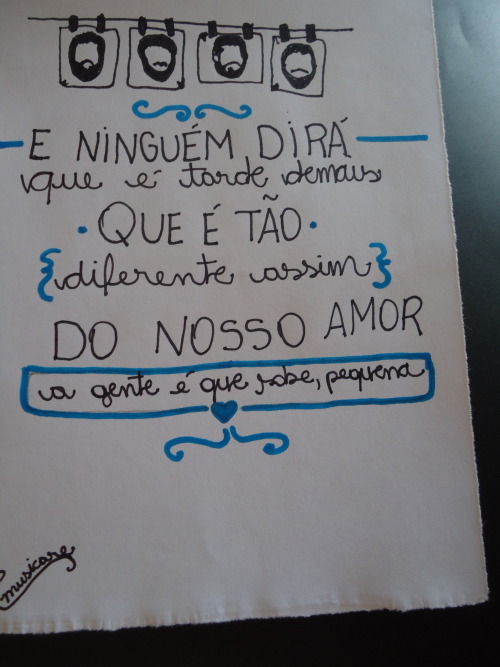 E NINGUÉM DIRÁ
que é tarde demais
QUE É TÃO
diferente assim
DO NOSSO AMOR
a gente é que sabe, pequena
musicare